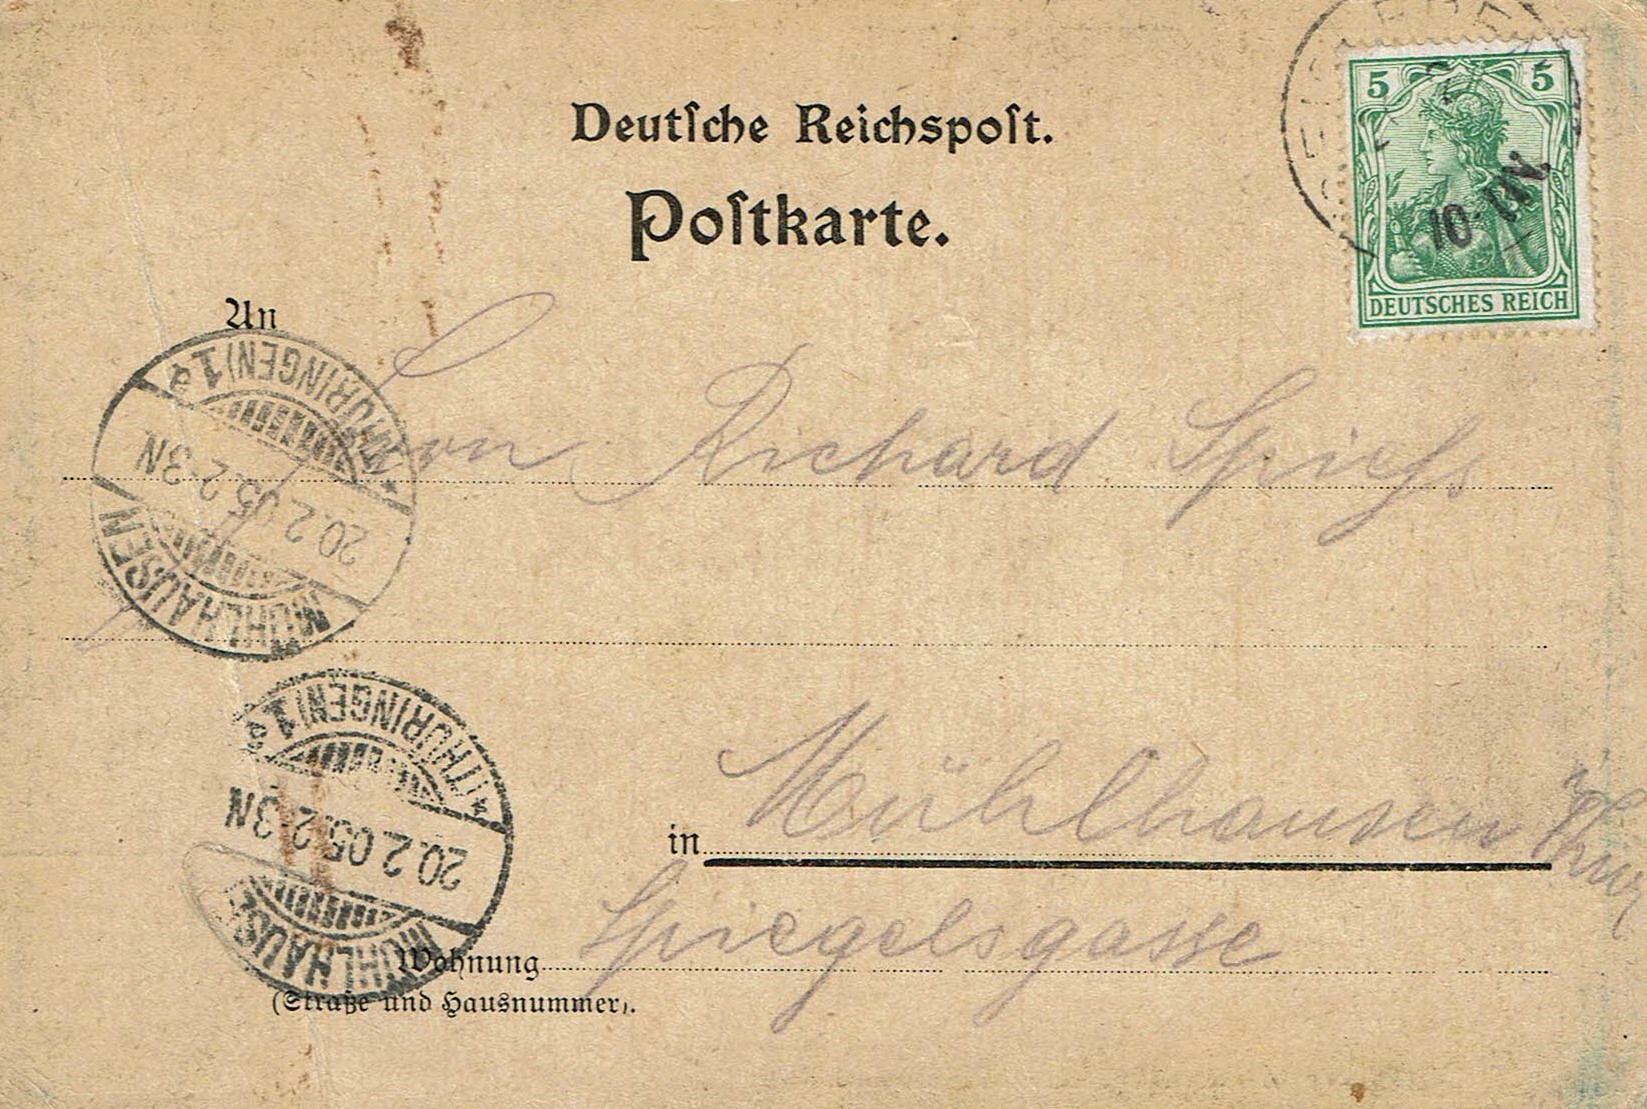 Deutſche Reichspoſt.
Poſtkarte.
5 5
10-11V.
DEUTSCHES REICH
An
Herrn Richard Spieſs
MÜHLHAUSEN (THÜRINGEN) 1 a
20.2.05.2-3N
in Mühlhausen
Thür
Spiegelsgasse
MÜHLHAUSEN (THÜRINGEN) 1 a
20.2.05.2-3N
Wohnung
(Straße und Hausnummer).